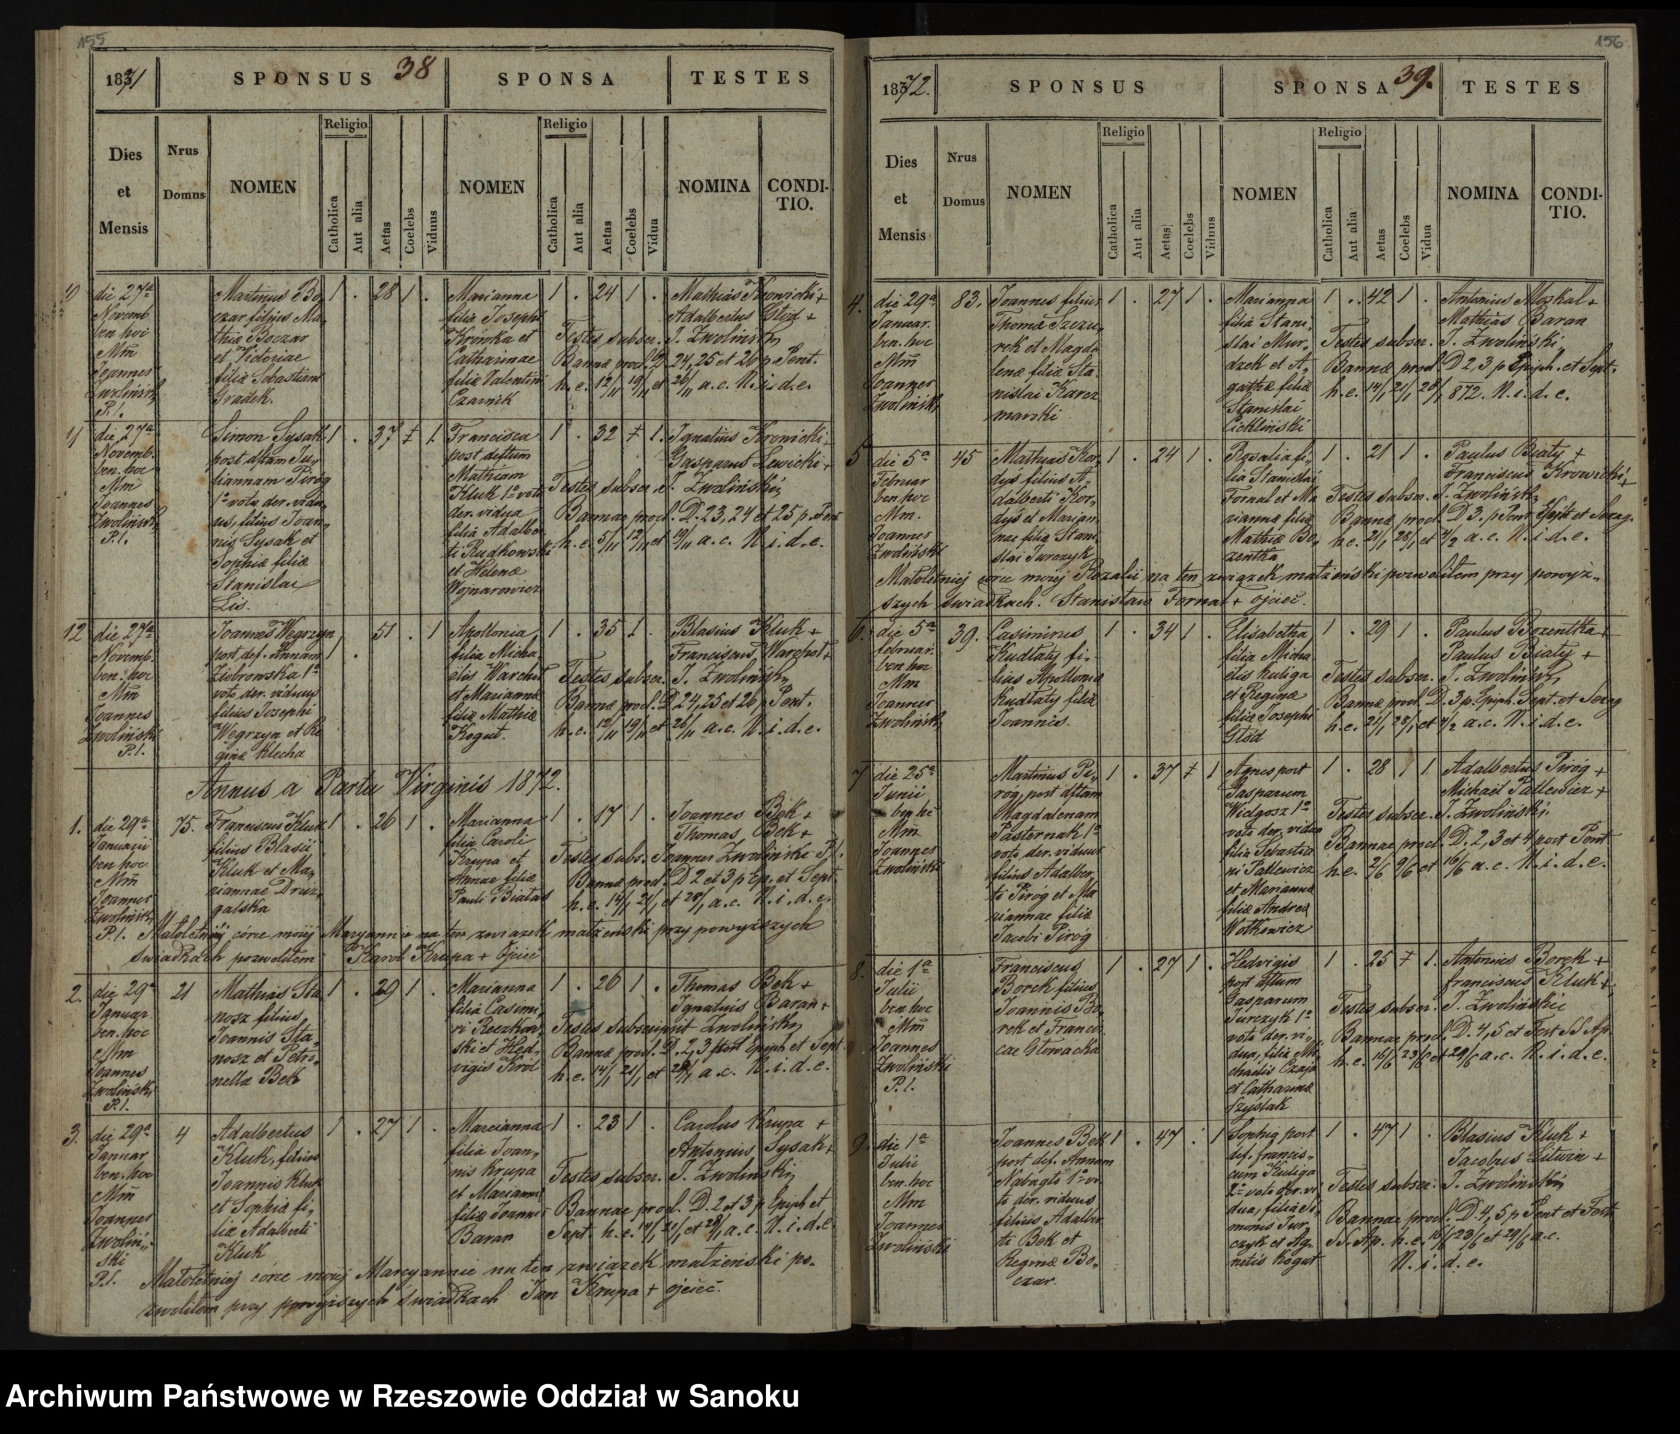 155
1871 SPONSUS 38 SPONSA TESTES
Dies et Mensis
Nrus Domus
NOMEN
Religio
Catholica
Aut alia
Aetas
Coelebs
Viduus
NOMEN
Religio
Catholica
Aut alia
Aetas
Coelebs
Vidua
NOMINA
CONDI-
TIO.
10 die 27a
Novemb
ben. hoc
Mm
Joannes
Zwoliński
P.l.
Martinus Bo
czar filius Ma
thiæ Boczar
et Victoriae
filiæ Sebastiani
Gradek.
1 . 28 1 .
Marianna
filia Josephi
Krówka et
Catharinae
filiæ Valentini
Czarnik
1 . 24 1 .
Mathias Kronicki +
Adalbertus Głód +
Testes subscr. J. Zwoliński
Bannæ procl. D 24, 25 et 26 p. Pent.
h. e. 12/11 19/11 et 26/11 a. c. N. i. d. e.
11 die 27a
Novemb.
ben. hoc
Mm
Joannes
Zwoliński
P.l.
Simon Sysak
post dftam Ju
liannam Piróg
1o voto der. vidu
us, filius Joan
nis Sysak et
Sophiæ filiæ
Stanislai
Lis.
1 . 37 + 1
Francisca
post dftum
Mathiam
Kluk 1o voto
der. vidua
filia Adalber
ti Rudkowski
et Helenæ
Wojnarowicz
1 . 32 + 1.
Ignatius Kronicki +
Gasparus Lewicki +
Testes subscr. J. Zwoliński
Bannae procl. D. 23, 24 et 25 p. Pent
h. e. 5/11 12/11 et 19/11 a. c. N. i. d. e.
12 die 27a
Novemb.
ben. hoc
Mm
Joannes
Zwoliński
P.l.
Joannes Węgrzyn
post def. Annam
Ziobrowska 1o
voto der. viduus
filius Josephi
Węgrzyn et Re
ginæ Klecha
1 . 51 . 1
Apollonia
filia Micha
elis Warchoł
et Mariannæ
filiæ Mathiæ
Kogut.
1 . 35 1 .
Blasius Kluk +
Franciscus Warchoł +
Testes subscr. J. Zwoliński
Bannæ procl. D 24, 25 et 26 p. Pent.
h. e. 12/11 19/11 et 26/11 a. c. N. i. d. e.
Annus a Partu Virginis 1872.
1. die 29a
Januarii
ben hoc
Mm
Joannes
Zwoliński
P.l.
75.
Franciscus Kluk
filius Blasii
Kluk et Ma
riannae Druz
galska
1 . 26 1 .
Marianna
filia Caroli
Krupa et
Annae filiæ
Pauli Białas
1 . 17 1 .
Joannes Bek +
Thomas Bek +
Testes subs. Joannes Zwoliński P.l.
Bannæ procl. D 2 et 3 p Ep. et Sept.
h. e. 14/1 21/1 et 28/1 a. c. N. i. d. e.
Małoletniej córce mojej Maryannie na ten związek małżeński przy powyższych
świadkach pozwoliłem Karol Krupa + Ojciec
2. die 29a
Januar.
ben. hoc
Mm
Joannes
Zwoliński
P.l.
21
Mathias Sta
nosz filius
Joannis Sta
nosz et Petro
nellæ Bek
1 . 29 1 .
Marianna
filia Casimi
ri Reczkow
ski et Hed
vigis Król
1 . 20 1 .
Thomas Bek +
Ignatius Baran +
Testes subscripsit Zwoliński
Bannæ procl. D. 2, 3 post Epiph et Sept
h. e. 14/1 21/1 et 28/1 a. c. N. i. d. e.
3. die 29a
Januar
ben. hoc
Mm
Joannes
Zwoliń
ski
P.l.
4
Adalbertus
Kluk, filius
Joannis Kluk
et Sophiæ fi
liæ Adalberti
Kluk
1 . 27 1 .
Marianna
filia Joan
nis Krupa
et Marianne
filiæ Joannis
Baran
1 . 23 1 .
Carolus Krupa +
Antonius Sysak +
Testes subscr. J. Zwoliński
Bannae procl. D. 2 et 3 p Epiph et
Sept. h. e. 14/1 21/1 et 28/1 a. c. N. i. d. e.
Małoletniej córce mojej Maryannie na ten związek małżeński po
zwoliłem przy powyższych świadkach Jan Krupa + ojciec.
156
1872. SPONSUS SPONSA 39. TESTES
Dies et Mensis
Nrus Domus
NOMEN
Religio
Catholica
Aut alia
Aetas
Coelebs
Viduus
NOMEN
Religio
Catholica
Aut alia
Aetas
Coelebs
Vidua
NOMINA
CONDI-
TIO.
4. die 29a
Januar.
ben. hoc
Mm
Joannes
Zwoliński
83.
Joannes filius
Thomæ Szczu
rek et Magda
lenæ filiæ Sta
nislai Karcz
marski
1 . 27 1 .
Marianna
filia Stani
slai Mur
dzek et A
gathæ filiæ
Stanislai
Cichliński
1 . 42 1 .
Antonius Moskal +
Mathias Baran
Testes subscr. J. Zwoliński
Bannæ procl. D 2, 3 p Epiph. et Sept.
h. e. 14/1 21/1 28/1 872. N. i. d. e.
5 die 5a
Februar
ben hoc
Mm.
Joannes
Zwoliński
45
Mathias Kor
dyś filius A
dalberti Kor
dyś et Marian
nae filiæ Stani
slai Jurczyk
1 . 24 1 .
Rosalia fi
lia Stanislai
Fornal et Ma
riannæ filiæ
Mathiæ Bo
zentka
1 . 21 1 .
Paulus Biały +
Franciscus Krowicki +
Testes subscr. J. Zwoliński
Bannæ procl. D 3. p Sept et Sexag.
h. e. 21/1 28/1 et 4/2 a. c. N. i. d. e.
Małoletniej córce mojej Rozalii na ten związek małżeński pozwoliłem przy powyż
szych świadkach. Stanisław Fornal + ojciec.
6. die 5a
februar.
ben hoc
Mm
Joannes
Zwoliński
39.
Casimirus
Kudłaty fi
lius Apolloniæ
Kudłaty filiæ
Joannis.
1 . 34 1 .
Elisabetha
filia Micha
elis Kuliga
et Reginæ
filiæ Josephi
Głód
1 . 29 1 .
Paulus Bozentka +
Paulus Biały +
Testes subscr. J. Zwoliński
Bannæ procl. D. 3 p. Epiph. Sept. et Sexag
h. e. 21/1 28/1 et 4/2 a. c. N. i. d. e.
7 die 25a
Junii
ben hc
Mm
Joannes
Zwoliński
Martinus Pi
róg, post dftam
Magdalenam
Pasternak 1o
voto der. viduus
filius Adalber
ti Piróg et Ma
riannae filiæ
Jacobi Piróg
1 . 37 + 1
Agnes post
Gasparum
Widgosz 1o
voto der. vidua
filia Sebastia
ni Patlewicz
et Mariannæ
filiæ Andreæ
Wotkowicz
1 . 28 1 1
Adalbertus Piróg +
Michael Patlewicz +
Testes subscr. J. Zwoliński
Bannae procl. D. 2, 3 et 4 post Pent
h. e. 2/6 9/6 et 16/6 a. c. N. i. d. e.
8. die 1a
Julii
ben hoc
Mm
Joannes
Zwoliński
P.l.
Franciscus
Borek filius
Joannis Bo
rek et Francis
cae Głowacka
1 . 27 1 .
Hedvigis
post dftum
Gasparum
Jurczyk 1o
voto der. vi
dua, filia Mi
chaelis Czaja
et Catharinæ
Szyślak
1 . 25 + 1.
Antonius Borek +
franciscus Kluk +
Testes subscr. J. Zwoliński
Bannæ procl. D. 4, 5 et Fest SS. Ap.
h. e. 16/6 23/6 et 29/6 a. c. N. i. d. e.
9. die 1a
Julii
ben. hoc
Mm
Joannes
Zwoliński
Joannes Bek
post def. Annam
Nabagło 1o vo
to der. viduus
filius Adalber
ti Bek et
Reginæ Bo
czar.
1 . 47 . 1
Sophia post
def. francis
cum Kuliga
2o voto der. vi
dua, filia Si
monis Jur
czyk et Ag
netis Kogut
1 . 47 1 .
Blasius Kluk +
Jacobus Litwin +
Testes subscr. J. Zwoliński
Bannae procl. D. 4, 5 p Pent et Fest.
SS. Ap. h. e. 16/6 23/6 et 29/6 a. c.
N. i. d. e.
Archiwum Państwowe w Rzeszowie Oddział w Sanoku